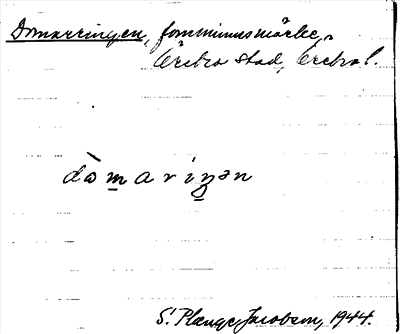 Domarringen, fornminnesmärke,
Örebro stad, Örebro l.
dὼmariŋən
S. Plange Jacobson, 1944.